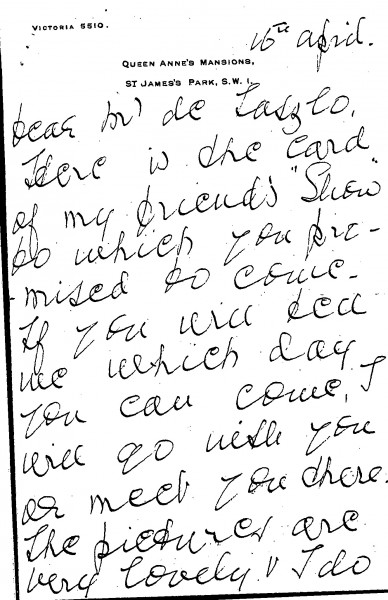 VICTORIA 5510.
16th April.
QUEEN ANNE'S MANSIONS,
ST JAMES'S PARK, S.W.1.
Dear Mr de Laszlo,
Here is the card
of my friend's "Show"
to which you pro-
-mised to come.
If you will tell
me which day
you can come, I
will go with you
or meet you there.
The pictures are
very lovely & I do